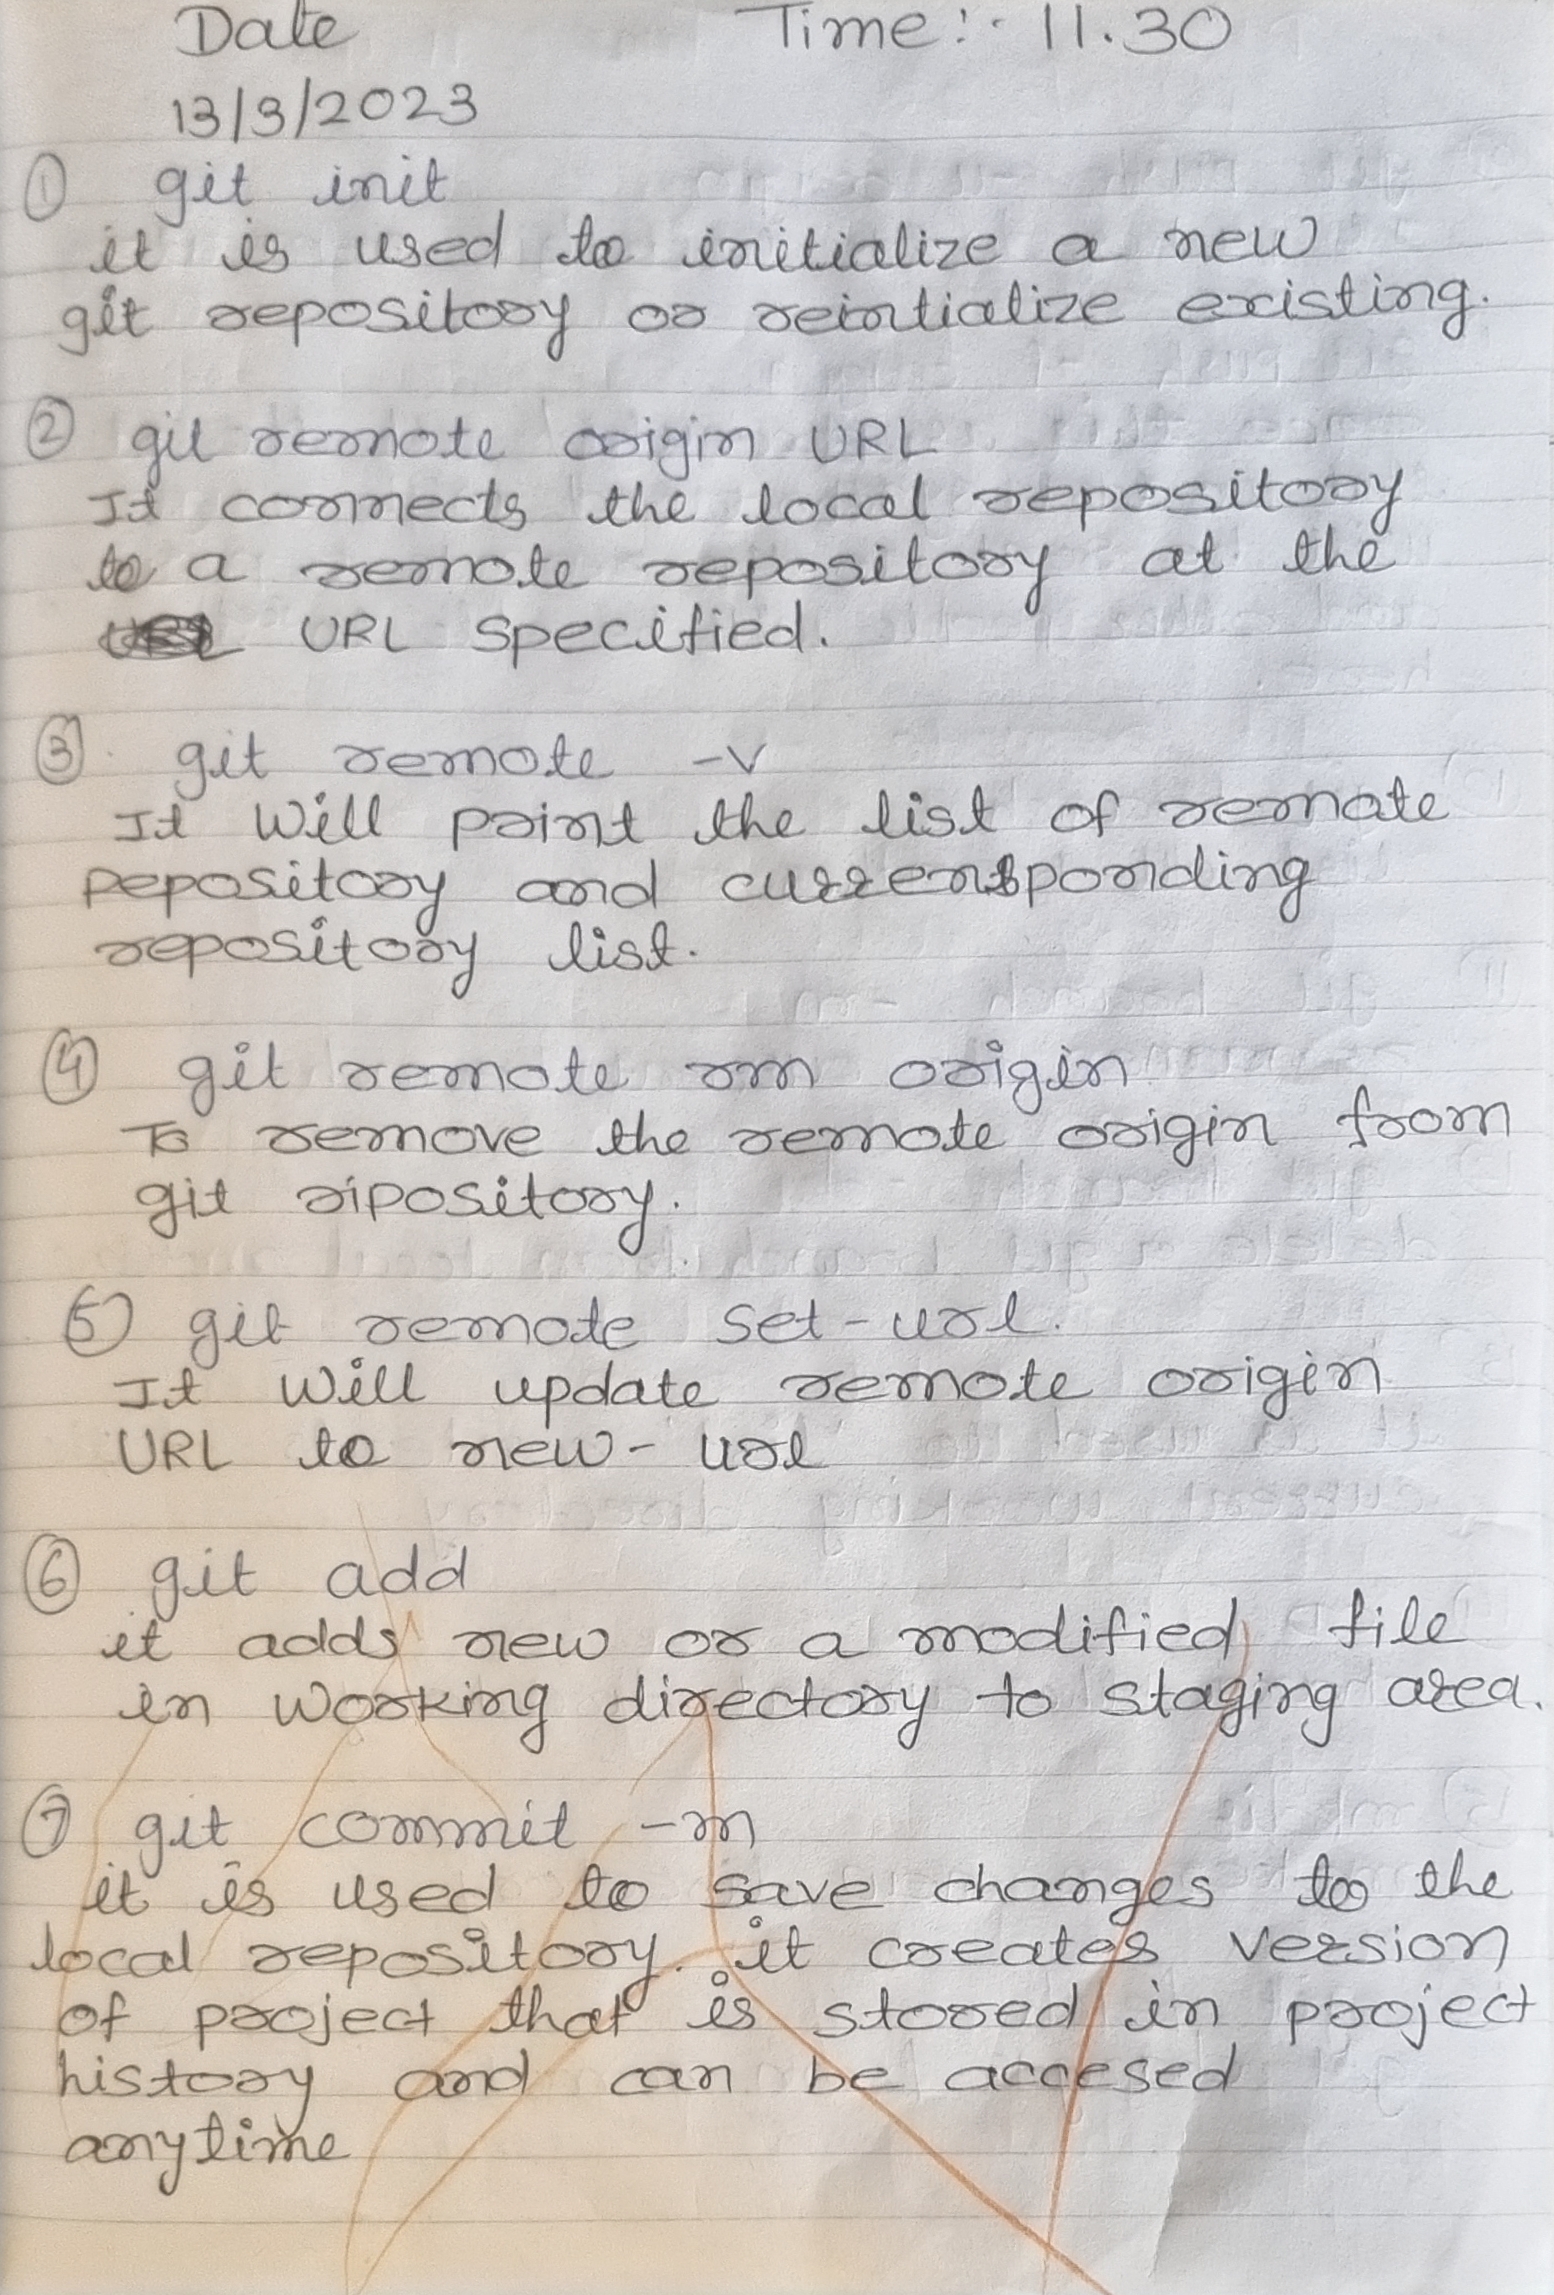 Date Time:- 11.30
13/3/2023
① git init
it is used to initialize a new
git repository or reintialize existing.
② git remote origin URL
It connects the local repository
to a remote repository at the
URL specified.
③ git remote -v
It will print the list of remote
pepository and currensponding
repository list.
④ git remote rm origin
To remove the remote origin from
git ripository.
⑤ git remote set-url.
It will update remote origin
URL to new-url
⑥ git add
it adds new or a modified file
in working directory to staging area.
⑦ git commit -m
it is used to save changes to the
local repository. it creates version
of project that is stored in project
history and can be accesed
anytime